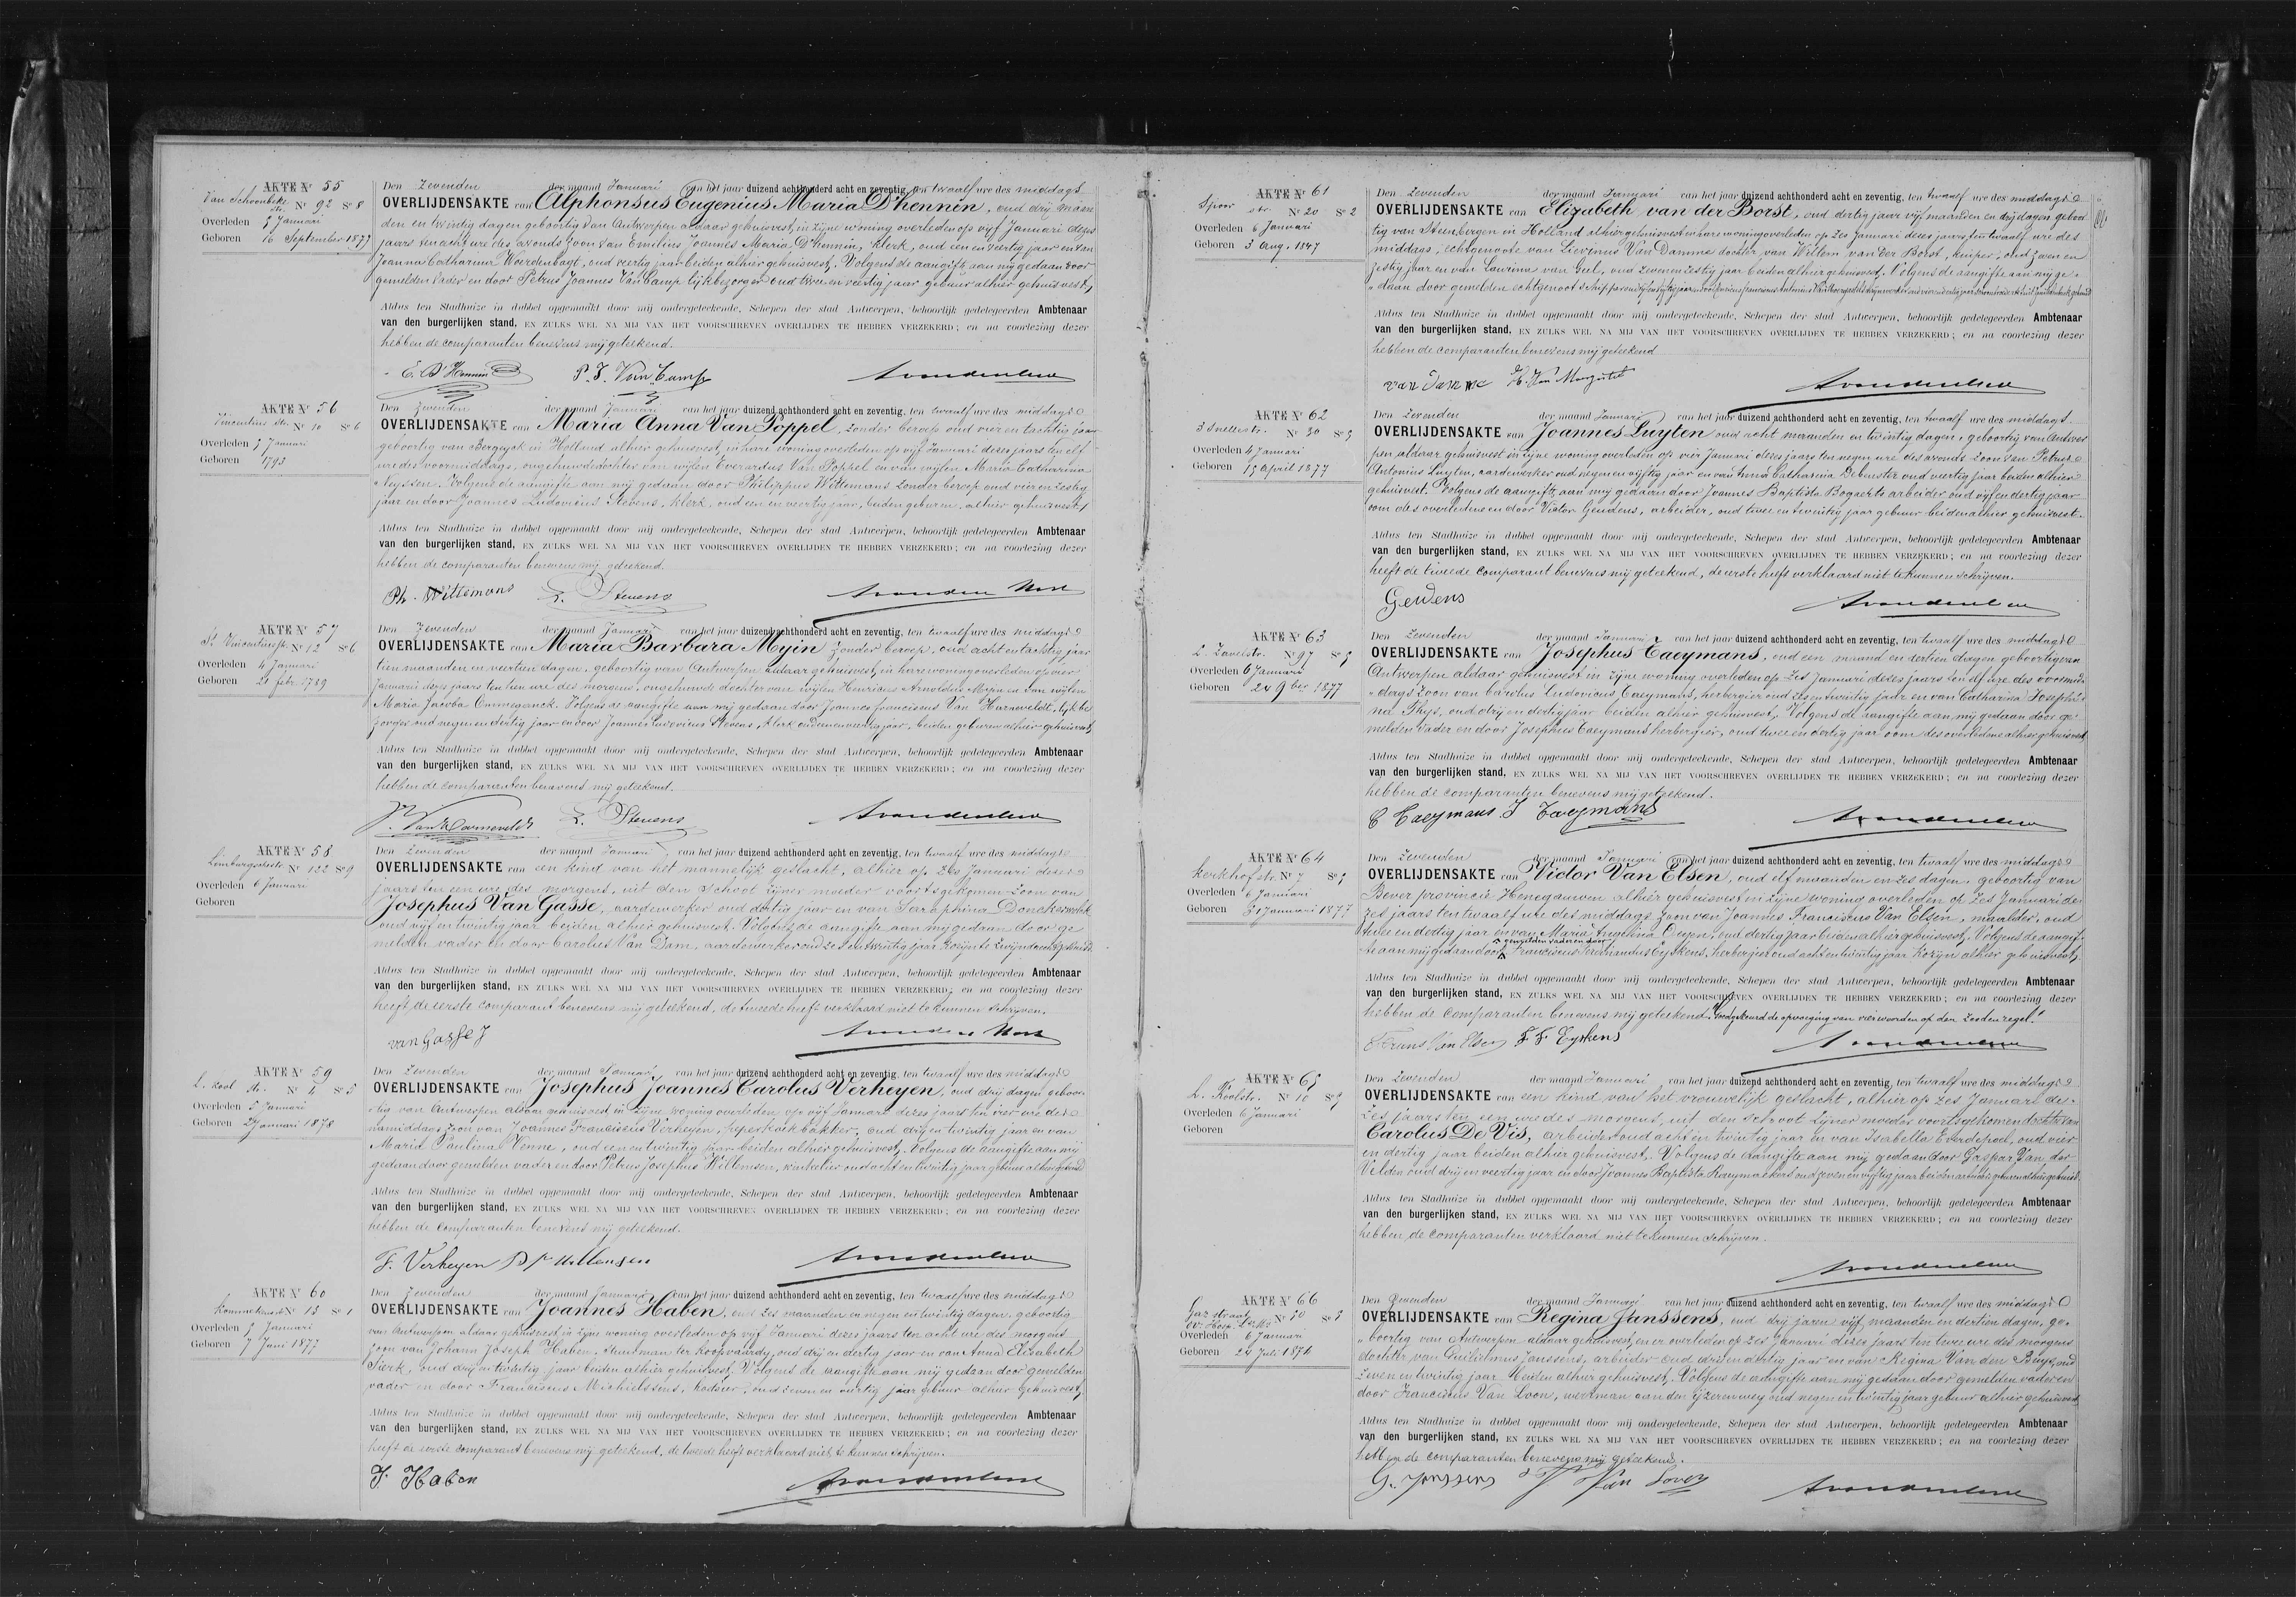 AKTE Nr 55
Van Schoenbeke
str. Nr 92 Sn 8
Overleden 5 Januari
Geboren 16 September 1877
Den Zevenden der maand Januari van het jaar duizend achthonderd acht en zeventig, ten twaalf ure des middags
OVERLIJDENSAKTE van Alphonsus Eugenius Maria D'hennin, oud drij maan
den en twintig dagen geboortig van Antwerpen aldaar gehuisvest, in zijne woning overleden op vijf Januari dezes
jaars ten acht ure des avonds zoon van Emilius Joannes Maria D'hennin, klerk, oud een en veertig jaar en van
Joanna Catharina Weerdenbagt, oud veertig jaar beiden alhier gehuisvest. Volgens de aangifte aan mij gedaan door
gemelden vader en door Petrus Joannes Van Camp lijkbezorger oud twee en veertig jaar gebuur alhier gehuisvest,
Aldus ten Stadhuize in dubbel opgemaakt door mij ondergeteekende, Schepen der stad Antwerpen, behoorlijk gedelegeerden Ambtenaar
van den burgerlijken stand, EN ZULKS WEL NA MIJ VAN HET VOORSCHREVEN OVERLIJDEN TE HEBBEN VERZEKERD; en na voorlezing dezer
hebben de comparanten benevens mij geteekend.
E. D'Hennin P. J. Van Camp
AKTE Nr 56
Vincentius str. Nr 10 Sn 6
Overleden 5 Januari
Geboren 1793
Den Zevenden der maand Januari van het jaar duizend achthonderd acht en zeventig, ten twaalf ure des middags
OVERLIJDENSAKTE van Maria Anna Van Poppel, zonder beroep oud vier en tachtig jaar
geboortig van Bergeyk in Holland alhier gehuisvest, in hare woning overleden op vijf Januari dezes jaars ten elf
ure des voormiddags, ongehuwde dochter van wijlen Everardus Van Poppel en van wijlen Maria Catharina
Neyssen. Volgens de aangifte aan mij gedaan door Philippus Wittemans zonder beroep oud vier en zestig
jaar en door Joannes Ludovicus Stevens, klerk, oud een en veertig jaar, beiden geburen, alhier gehuisvest,
Aldus ten Stadhuize in dubbel opgemaakt door mij ondergeteekende, Schepen der stad Antwerpen, behoorlijk gedelegeerden Ambtenaar
van den burgerlijken stand, EN ZULKS WEL NA MIJ VAN HET VOORSCHREVEN OVERLIJDEN TE HEBBEN VERZEKERD; en na voorlezing dezer
hebben de comparanten benevens mij geteekend.
Ph. Wittemans L. Stevens
AKTE Nr 57
St Vincentiusstr. Nr 12 Sn 6
Overleden 4 Januari
Geboren 21 febr. 1789
Den Zevenden der maand Januari van het jaar duizend achthonderd acht en zeventig, ten twaalf ure des middags
OVERLIJDENSAKTE van Maria Barbara Myin zonder beroep, oud acht en tachtig jaar
tien maanden en veertien dagen, geboortig van Antwerpen aldaar gehuisvest, in hare woning overleden op vier
Januari dezes jaars ten tien ure des morgens, ongehuwde dochter van wijlen Henricus Arnoldus Myin en van wijlen
Maria Jacoba Onneganck. Volgens de aangifte aan mij gedaan door Joannes franciscus Van Harneveldt, lijkbe
zorger oud negen en dertig jaar en door Joannes Ludovicus Stevens, klerk oud een en veertig jaar, beiden geburen alhier gehuisvest,
Aldus ten Stadhuize in dubbel opgemaakt door mij ondergeteekende, Schepen der stad Antwerpen, behoorlijk gedelegeerden Ambtenaar
van den burgerlijken stand, EN ZULKS WEL NA MIJ VAN HET VOORSCHREVEN OVERLIJDEN TE HEBBEN VERZEKERD; en na voorlezing dezer
hebben de comparanten benevens mij geteekend.
L. Stevens
AKTE Nr 58
Limburgschestr. Nr 122 Sn 9
Overleden 6 Januari
Geboren
Den Zevenden der maand Januari van het jaar duizend achthonderd acht en zeventig, ten twaalf ure des middags
OVERLIJDENSAKTE van een kind van het mannelijk geslacht, alhier op zes Januari dezes
jaars ten een ure des morgens, uit den schoot zijner moeder voortsgekomen zoon van
Josephus Van Gasse, aardewerker oud dertig jaar en van Seraphina Donckerwolck
oud vijf en twintig jaar beiden alhier gehuisvest. Volgens de aangifte aan mij gedaan door ge
melden vader en door Carolus Van Dam, aardewerker oud zes en twintig jaar
Aldus ten Stadhuize in dubbel opgemaakt door mij ondergeteekende, Schepen der stad Antwerpen, behoorlijk gedelegeerden Ambtenaar
van den burgerlijken stand, EN ZULKS WEL NA MIJ VAN HET VOORSCHREVEN OVERLIJDEN TE HEBBEN VERZEKERD; en na voorlezing dezer
heeft de eerste comparant benevens mij geteekend, de tweede heeft verklaard niet te kunnen schrijven.
van Gasse J
AKTE Nr 59
L. Kool str. Nr 4 Sn 5
Overleden 5 Januari
Geboren 2 Januari 1878
Den Zevenden der maand Januari van het jaar duizend achthonderd acht en zeventig, ten twaalf ure des middags
OVERLIJDENSAKTE van Josephus Joannes Carolus Verheyen, oud drij dagen geboor
tig van Antwerpen aldaar gehuisvest, in zijne woning overleden op vijf Januari dezes jaars ten vier ure des
namiddags zoon van Joannes Franciscus Verheyen, peperkoekbakker, oud drij en twintig jaar en van
Maria Paulina Venne, oud een en twintig jaar beiden alhier gehuisvest. Volgens de aangifte aan mij
gedaan door gemelden vader en door Petrus Josephus Willemsen, winkelier oud acht en twintig jaar gebuur alhier gehuisvest
Aldus ten Stadhuize in dubbel opgemaakt door mij ondergeteekende, Schepen der stad Antwerpen, behoorlijk gedelegeerden Ambtenaar
van den burgerlijken stand, EN ZULKS WEL NA MIJ VAN HET VOORSCHREVEN OVERLIJDEN TE HEBBEN VERZEKERD; en na voorlezing dezer
hebben de comparanten benevens mij geteekend.
F. Verheyen
AKTE Nr 60
Nr 13 Sn 1
Overleden 5 Januari
Geboren 7 Juni 1877
Den Zevenden der maand Januari van het jaar duizend achthonderd acht en zeventig, ten twaalf ure des middags
OVERLIJDENSAKTE van Joannes Haben, oud zes maanden en negen en twintig dagen, geboortig
van Antwerpen aldaar gehuisvest, in zijne woning overleden op vijf Januari dezes jaars ten acht ure des morgens
zoon van Johann Joseph Haben, stuurman ter koopvaardij, oud drij en dertig jaar en van Anna Elisabeth
Sierk, oud drij en twintig jaar beiden alhier gehuisvest. Volgens de aangifte aan mij gedaan door gemelden
vader en door Franciscus Michielssens, kodsier, oud zeven en veertig jaar gebuur alhier gehuisvest,
Aldus ten Stadhuize in dubbel opgemaakt door mij ondergeteekende, Schepen der stad Antwerpen, behoorlijk gedelegeerden Ambtenaar
van den burgerlijken stand, EN ZULKS WEL NA MIJ VAN HET VOORSCHREVEN OVERLIJDEN TE HEBBEN VERZEKERD; en na voorlezing dezer
heeft de eerste comparant benevens mij geteekend, de tweede heeft verklaard niet te kunnen schrijven.
J. Haben
AKTE Nr 61
Spoor str. Nr 20 Sn 2
Overleden 6 Januari
Geboren 3 Aug. 1847
Den Zevenden der maand Januari van het jaar duizend achthonderd acht en zeventig, ten twaalf ure des middags
OVERLIJDENSAKTE van Elizabeth van der Borst, oud dertig jaar vijf maanden en drij dagen geboor
tig van Steenbergen in Holland alhier gehuisvest in hare woning overleden op zes Januari dezes jaars ten twaalf ure des
middags, echtgenoote van Lievinus Van Damme dochter van Willem van der Borst, kuiper, oud zeven en
zestig jaar en van Laurina van Gul, oud zeven en zestig jaar beiden alhier gehuisvest. Volgens de aangifte aan mij ge
daan door gemelden echtgenoot schipper
Aldus ten Stadhuize in dubbel opgemaakt door mij ondergeteekende, Schepen der stad Antwerpen, behoorlijk gedelegeerden Ambtenaar
van den burgerlijken stand, EN ZULKS WEL NA MIJ VAN HET VOORSCHREVEN OVERLIJDEN TE HEBBEN VERZEKERD; en na voorlezing dezer
hebben de comparanten benevens mij geteekend
van Damme
AKTE Nr 62
3 Snellestr. Nr 30 Sn 5
Overleden 4 Januari
Geboren 15 April 1877
Den Zevenden der maand Januari van het jaar duizend achthonderd acht en zeventig, ten twaalf ure des middags
OVERLIJDENSAKTE van Joannes Luyten oud acht maanden en twintig dagen, geboortig van Antwer
pen aldaar gehuisvest in zijne woning overleden op vier Januari dezes jaars ten negen ure des avonds zoon van Petrus
Antonius Luyten, aardewerker, oud negen en vijftig jaar en van Anna Catharina Debuster oud veertig jaar beiden alhier
gehuisvest. Volgens de aangifte aan mij gedaan door Joannes Baptista Bogaerts arbeider, oud vijf en dertig jaar
oom des overledene en door Victor Geudens, arbeider, oud twee en twintig jaar gebuur beiden alhier gehuisvest.
Aldus ten Stadhuize in dubbel opgemaakt door mij ondergeteekende, Schepen der stad Antwerpen, behoorlijk gedelegeerden Ambtenaar
van den burgerlijken stand, EN ZULKS WEL NA MIJ VAN HET VOORSCHREVEN OVERLIJDEN TE HEBBEN VERZEKERD; en na voorlezing dezer
heeft de tweede comparant benevens mij geteekend, de eerste heeft verklaard niet te kunnen schrijven.
Geudens
AKTE Nr 63
L. Zavelstr. Nr 97 Sn 5
Overleden 6 Januari
Geboren 24 9ber 1877
Den Zevenden der maand Januari van het jaar duizend achthonderd acht en zeventig, ten twaalf ure des middags
OVERLIJDENSAKTE van Josephus Caeymans, oud een maand en dertien dagen geboortig van
Antwerpen aldaar gehuisvest in zijne woning overleden op zes Januari dezes jaars ten elf ure des voormid
dags zoon van Carolus Ludovicus Caeymans, herbergier oud zes en twintig jaar en van Catharina Josephi
na Thys, oud drij en dertig jaar beiden alhier gehuisvest. Volgens de aangifte aan mij gedaan door ge
melden vader en door Josephus Caeymans herbergier, oud twee en dertig jaar oom des overledene alhier gehuisvest
Aldus ten Stadhuize in dubbel opgemaakt door mij ondergeteekende, Schepen der stad Antwerpen, behoorlijk gedelegeerden Ambtenaar
van den burgerlijken stand, EN ZULKS WEL NA MIJ VAN HET VOORSCHREVEN OVERLIJDEN TE HEBBEN VERZEKERD; en na voorlezing dezer
hebben de comparanten benevens mij geteekend.
C Caeymans J Caeymans
AKTE Nr 64
Kerkhofstr. Nr 7 Sn 5
Overleden 6 Januari
Geboren 31 Januari 1877
Den Zevenden der maand Januari van het jaar duizend achthonderd acht en zeventig, ten twaalf ure des middags
OVERLIJDENSAKTE van Victor Van Elsen, oud elf maanden en zes dagen, geboortig van
Bever provincie Henegauwen alhier gehuisvest in zijne woning overleden op zes Januari de
zes jaars ten twaalf ure des middags zoon van Joannes Franciscus Van Elsen, maalder, oud
twee en dertig jaar en van Maria Angelina Duyn, oud dertig jaar beiden alhier gehuisvest. Volgens de aangif
gemelden vader en door
te aan mij gedaan door Franciscus Ferdinandus Eyskens, herbergier oud acht en twintig jaar kozijn alhier gehuisvest,
Aldus ten Stadhuize in dubbel opgemaakt door mij ondergeteekende, Schepen der stad Antwerpen, behoorlijk gedelegeerden Ambtenaar
van den burgerlijken stand, EN ZULKS WEL NA MIJ VAN HET VOORSCHREVEN OVERLIJDEN TE HEBBEN VERZEKERD; en na voorlezing dezer
hebben de comparanten benevens mij geteekend. Goedgekeurd de bijvoeging van vier woorden op den zesden regel.
Frans Van Elsen F. F. Eyskens
AKTE Nr 65
L. Koolstr. Nr 10 Sn 5
Overleden 6 Januari
Geboren
Den Zevenden der maand Januari van het jaar duizend achthonderd acht en zeventig, ten twaalf ure des middags
OVERLIJDENSAKTE van een kind van het vrouwelijk geslacht, alhier op zes Januari de
zes jaars ten een ure des morgens, uit den schoot zijner moeder voortsgekomen dochter van
Carolus De Vis, arbeider oud acht en twintig jaar en van Isabella Everdepoel, oud vier
en dertig jaar beiden alhier gehuisvest. Volgens de aangifte aan mij gedaan door Gaspar Van der
Velden oud drij en veertig jaar en door Joannes Baptista Raeymaekers oud zeven en vijftig jaar beiden arbeiders geburen alhier gehuisd.
Aldus ten Stadhuize in dubbel opgemaakt door mij ondergeteekende, Schepen der stad Antwerpen, behoorlijk gedelegeerden Ambtenaar
van den burgerlijken stand, EN ZULKS WEL NA MIJ VAN HET VOORSCHREVEN OVERLIJDEN TE HEBBEN VERZEKERD; en na voorlezing dezer
hebben de comparanten verklaard niet te kunnen schrijven.
AKTE Nr 66
Gaz straat
Nr 50 Sn 5
Overleden 6 Januari
Geboren 24 Juli 1874
Den Zevenden der maand Januari van het jaar duizend achthonderd acht en zeventig, ten twaalf ure des middags
OVERLIJDENSAKTE van Regina Janssens, oud drij jaren vijf maanden en dertien dagen, ge
boortig van Antwerpen aldaar gehuisvest, en er overleden op zes Januari dezes jaars ten twee ure des morgens
dochter van Guilielmus Janssens, arbeider oud drij en dertig jaar en van Regina Van den Buys, oud
zeven en twintig jaar beiden alhier gehuisvest. Volgens de aangifte aan mij gedaan door gemelden vader en
door Franciscus Van Loon, werkman aan den ijzerenweg oud negen en twintig jaar gebuur alhier gehuisvest
Aldus ten Stadhuize in dubbel opgemaakt door mij ondergeteekende, Schepen der stad Antwerpen, behoorlijk gedelegeerden Ambtenaar
van den burgerlijken stand, EN ZULKS WEL NA MIJ VAN HET VOORSCHREVEN OVERLIJDEN TE HEBBEN VERZEKERD; en na voorlezing dezer
hebben de comparanten benevens mij geteekend.
G. Janssens